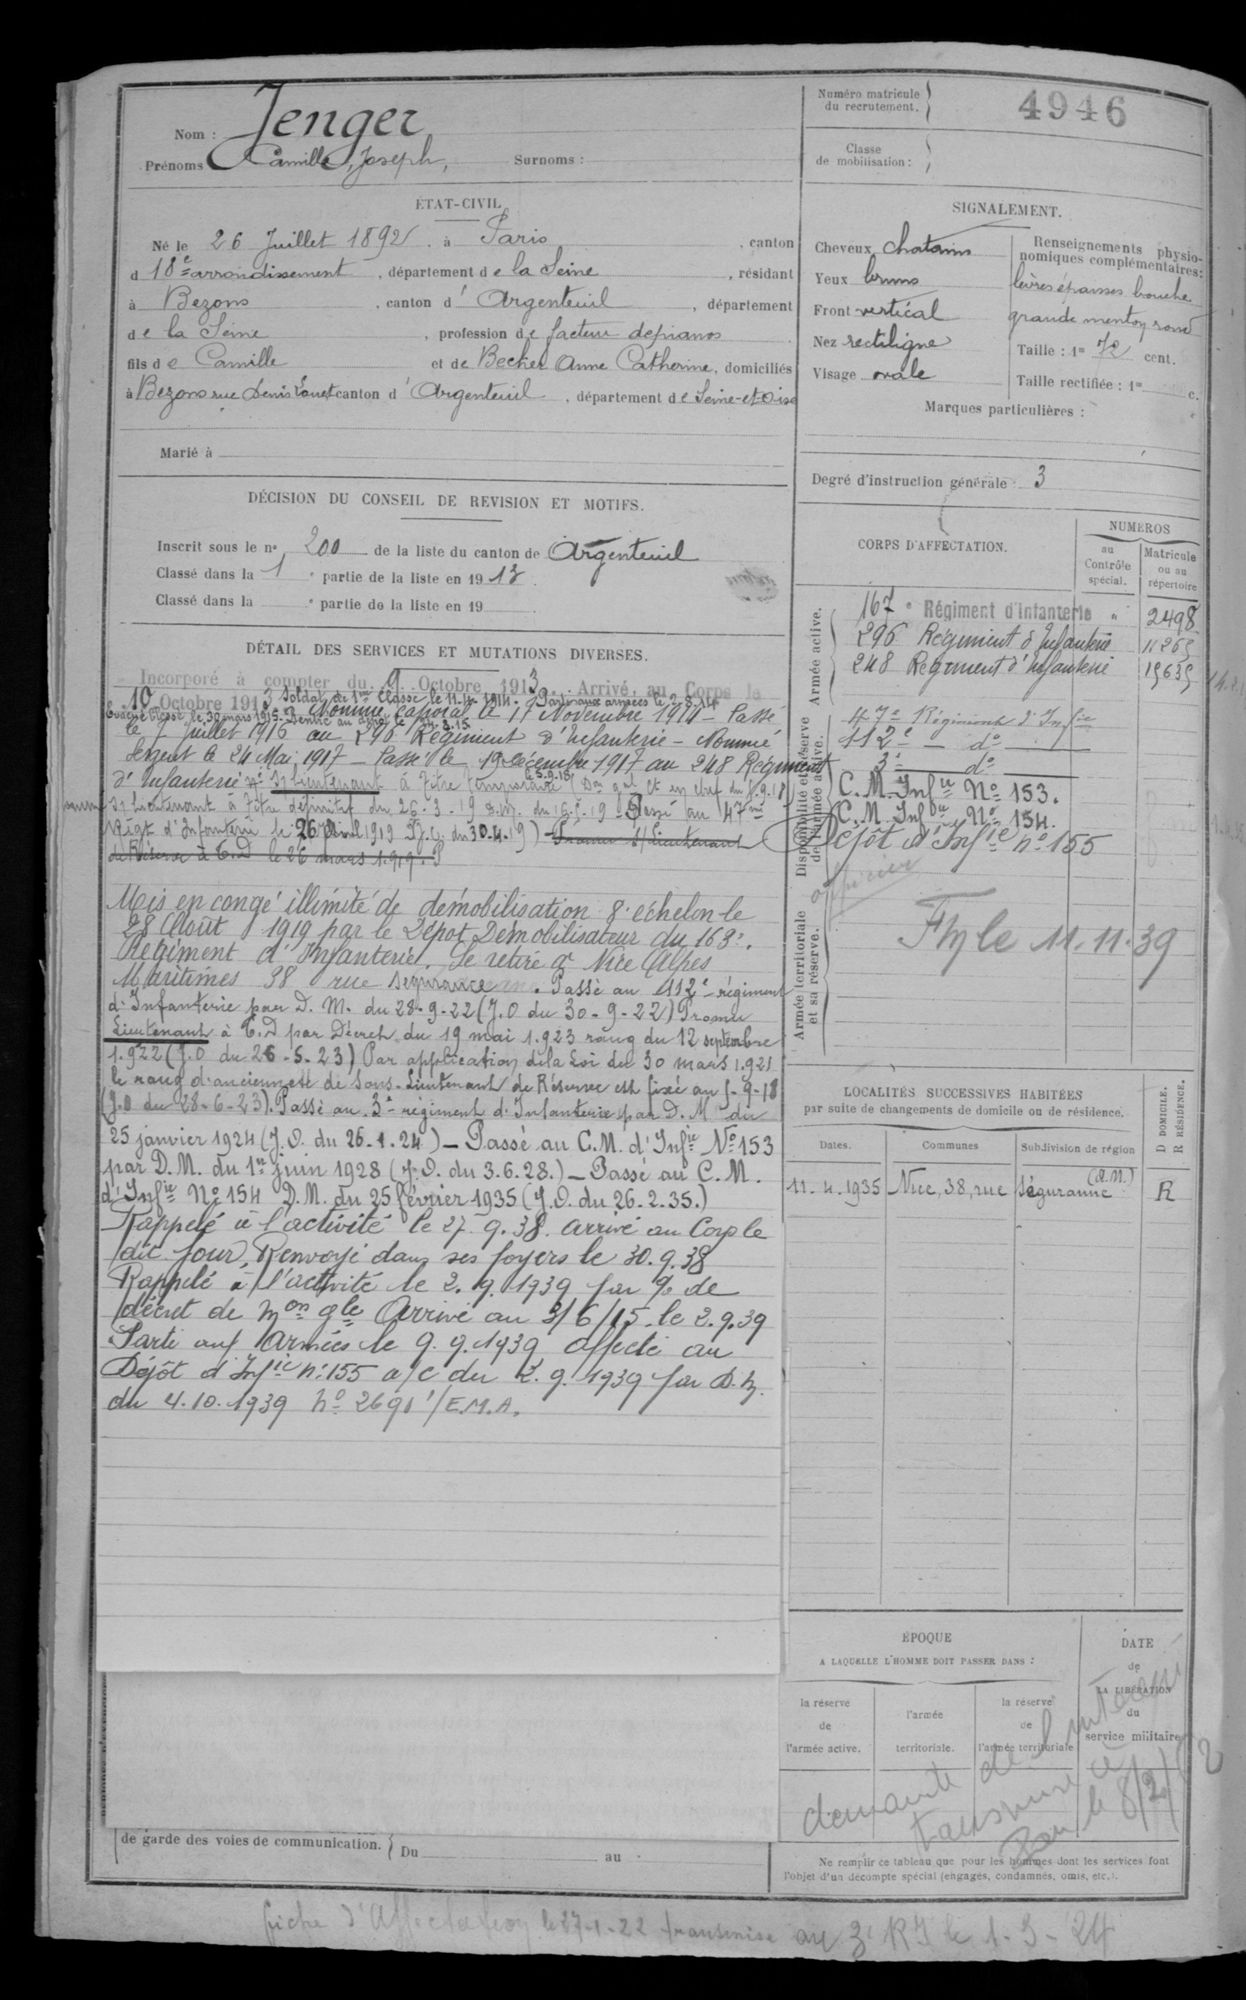 Nom : Jenger
Prénoms Camille, Joseph, Surnoms :
Numéro matricule du recrutement. 4946
Classe de mobilisation :
ÉTAT-CIVIL
Né le 26 Juillet 1892 à Paris, canton
d 18e arrondissement, département de la Seine, résidant
à Bezons, canton d'Argenteuil, département
de la Seine, profession de facteur de pianos
fils de Camille et de Becker Anne Catherine, domiciliés
à Bezons rue Denis canton d'Argenteuil, département de Seine-et-Oise
Marié à
SIGNALEMENT.
Cheveux chatains
Yeux bruns
Front vertical
Nez rectiligne
Visage ovale
Renseignements physionomiques complémentaires :
lèvres épaisses bouche
grande menton rond
Taille : 1m 72 cent.
Taille rectifiée : 1m c.
Marques particulières :
Degré d'instruction générale : 3
DÉCISION DU CONSEIL DE REVISION ET MOTIFS.
Inscrit sous le no 200 de la liste du canton de Argenteuil
Classé dans la 1 e partie de la liste en 1913
Classé dans la e partie de la liste en 19
CORPS D'AFFECTATION.
NUMÉROS
au Contrôle spécial.
Matricule ou au répertoire
Armée active.
167e Régiment d'Infanterie " 2498
296 Régiment d'Infanterie 11265
248 Régiment d'Infanterie 15635
Disponibilité et réserve de l'armée active.
47e Régiment d'Infie
112e — do
3e do
C. M. Infie No 153.
C. M. Infie No 154
Dépôt d'Infie no 155
officier
Armée territoriale et sa réserve.
Fhyle 11-11-39
DÉTAIL DES SERVICES ET MUTATIONS DIVERSES.
Incorporé à compter du 9 Octobre 1913. Arrivé au Corps le
10 Octobre 1913 Soldat de 1re Classe le 11.4.1914. Parti aux armées le 2.8.14
Evacué blessé le 30 mars 1915. Rentré au dépôt le
Nommé Caporal le 11 Novembre 1914 – Passé
le 7 Juillet 1916 au 296 Régiment d'Infanterie – Nommé
Sergent le 24 Mai 1917 – Passé le 19 décembre 1917 au 248 Régiment
d'Infanterie Né S/Lieutenant à titre temporaire le 5.9.18
S/Lieutenant à titre définitif du 26-3-19 Passé au 47me
Régt d'Infanterie le 26 Avril 1919 du 30.4.19) Promu S/Lieutenant
de Réserve à T.D le 26 mars 1919.
Mis en congé illimité de démobilisation 8e échelon le
28 Août 1919 par le Dépôt Démobilisateur du 163e
Régiment d'Infanterie. Se retire à Nice Alpes
Maritimes 38 rue Segurance. Passé au 112e régiment
d'Infanterie par D. M. du 28-9-22 (J.O du 30-9-22) Promu
Lieutenant à T.D par Décret du 19 mai 1.923 rang du 12 septembre
1.922 (J.O du 26-5-23) Par application de la Loi du 30 mars 1.921
le rang d'ancienneté de Sous-Lieutenant de Réserve est fixé au 5-9-18
(J.O du 28-6-23). Passé au 3e régiment d'Infanterie par D. M du
25 janvier 1924 (J.O. du 26-1-24) – Passé au C.M. d'Infie No 153
par D.M. du 1er juin 1928 (J.O. du 3.6.28.) – Passé au C. M.
d'Infie No 154 D.M. du 25 février 1935 (J.O. du 26.2.35.)
Rappelé à l'activité le 27.9.38 arrivé au Corps le
dit jour, Renvoyé dans ses foyers le 30.9.38
Rappelé à l'activité le 2.9.1939 par de
décret de Mon gle Arrivé au 3/6/15 le 2.9.39
Parti aux Armées le 9.9.1939 affecté au
Dépôt d'Infie no 155 a/c du 2.9.1939 par D.M.
du 4.10.1939 No 2690 1/E.M.A.
LOCALITÉS SUCCESSIVES HABITÉES
par suite de changements de domicile ou de résidence.
Dates. Communes Subdivision de région D DOMICILE. R RÉSIDENCE.
11.4.1935 Nice, 38, rue Séguranne (A.M.) R
ÉPOQUE
A LAQUELLE L'HOMME DOIT PASSER DANS :
la réserve de l'armée active.
l'armée territoriale.
la réserve de l'armée territoriale
DATE de LA LIBÉRATION du service militaire
demande de l'intéressé
transmise à
le 8/2/52
de garde des voies de communication. Du au
Ne remplir ce tableau que pour les hommes dont les services font
l'objet d'un décompte spécial (engagés, condamnés, omis, etc.).
fiche d'Affectation le 27-1-22 transmise au 3e RI le 1-3-24